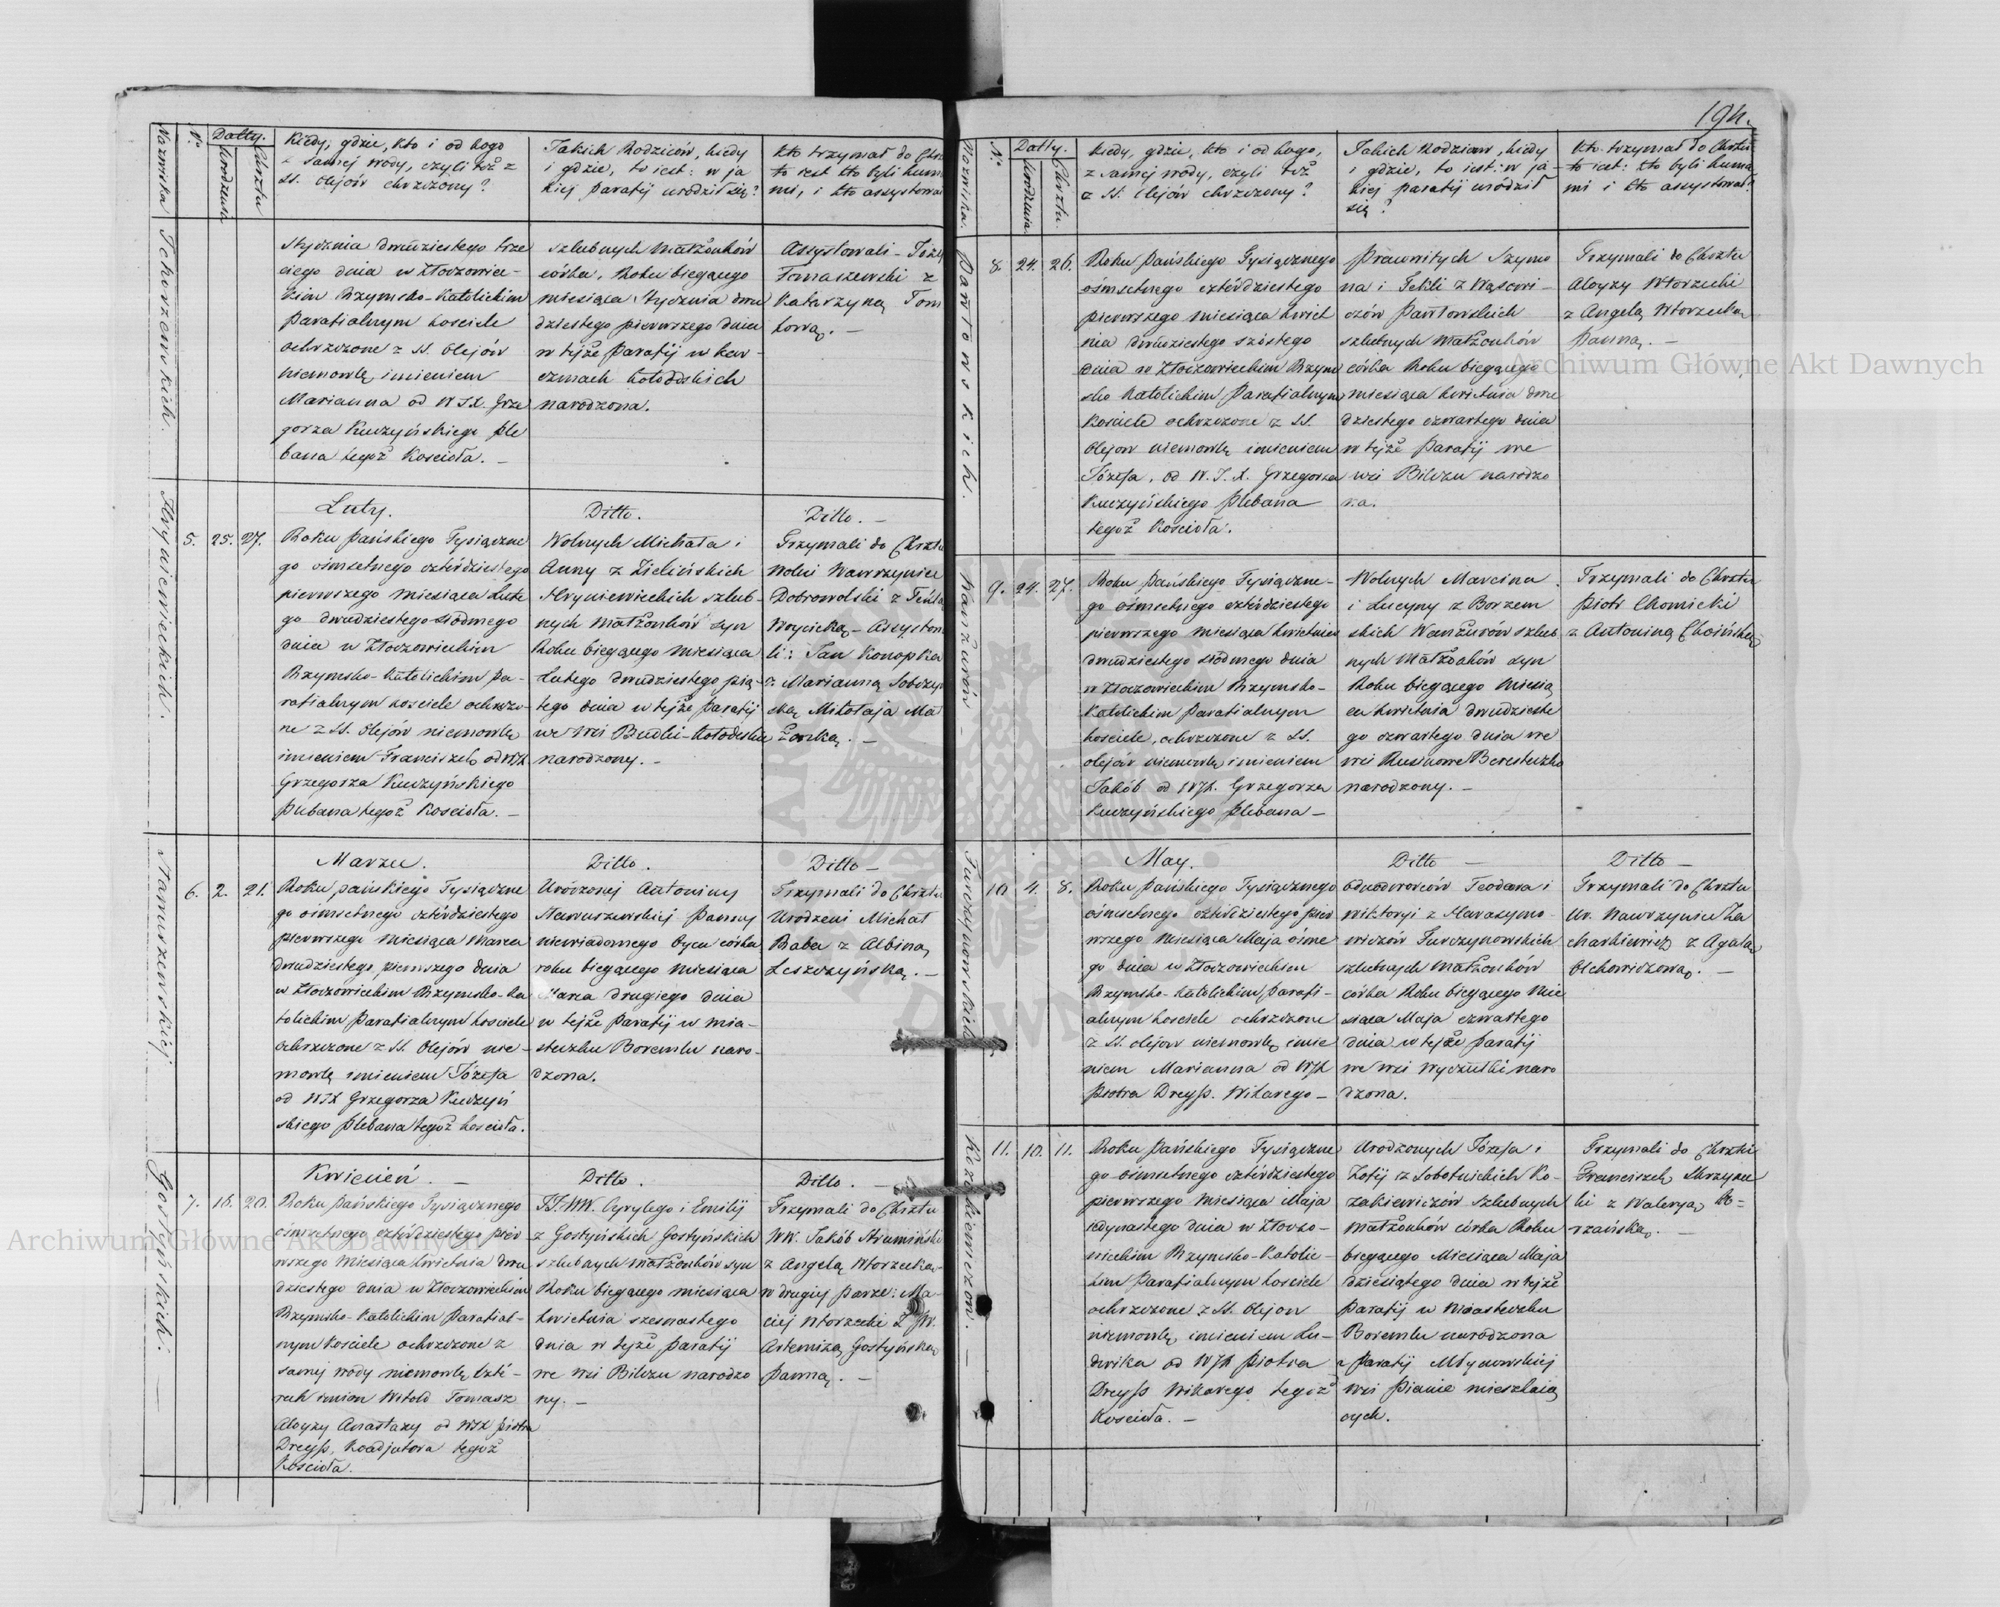 194.
Nazwiska
No.
Datty.
Urodzenia
Chrztu
Kiedy, gdzie, kto i od kogo
z samej wody, czyli też z
SS. Olejów chrzczony?
Jakich Rodziców, kiedy
i gdzie, to iest: w ja
kiej parafij urodził się?
Kto trzymał do Chrz
to iest kto byli kum
mi, i kto assystował
Tchorzewskich.
Stycznia dwudziestego trze
ciego dnia w Złoczowiec-
kim Rzymsko-Katolickim
Parafialnym kosciele
ochrzczone z SS. Olejów
niemowlę imieniem
Marianna od WJX. Grze
gorza Kuczyńskiego Ple
bana tegoż Kościoła. –
szlubnych Małżonków
córka, Roku biegącego
miesiąca Stycznia dwu
dziestego pierwszego dnia
w tejże Parafij w kar-
czmach kołodeskich
narodzona.
Assystowali – Józef
Tomaszewski z
Katarzyną Tom
kową. –
Hryniewieckich.
5. 25. 27.
Luty.
Roku Pańskiego Tysiączne
go ośmsetnego cztérdziestego
pierwszego miesiąca Lute
go dwudziestego siódmego
dnia w Złoczowieckim
Rzymsko-Katolickim Pa-
rafialnym kosciele ochrzczo-
ne z SS. Olejów niemowlę
imieniem Franciszek, od WJX
Grzegorza Kuczyńskiego
Plebana tegoż Kościoła. –
Ditto.
Wolnych Michała i
Anny z Zielińskich
Hryniewieckich szlub-
nych Małżonków syn
Roku biegącego miesiąca
Lutego dwudziestego pią-
tego dnia w tejże Parafij
we wsi Budki-Kołodeskie
narodzony. –
Ditto. –
Trzymali do Chrztu
Wolni Wawrzyniec
Dobrowolski z Teklą
Woycicką – Assystow
li: Jan Konopka
z Marianną Sobczyń
ską Mikołaja Ma
żonką. –
Staruszewskiej
6. 2. 21.
Marzec.
Roku pańskiego Tysiączne
go ośmsetnego cztérdziestego
pierwszego miesiąca Marca
dwudziestego pierwszego dnia
w Złoczowieckim Rzymsko-Ka
tolickim Parafialnym kosciele
ochrzczone z SS. Olejów nie-
mowlę imieniem Józefa
od WJX Grzegorza Kuczyń
skiego Plebana tegoż kościoła.
Ditto.
Urodzonej Antoniny
Staruszewskiej Panny
niewiadomego Oyca córka
roku biegącego miesiąca
Marca drugiego dnia
w tejże Parafij w mia-
steczku Boremlu naro-
dzona.
Ditto –
Trzymali do Chrztu
Urodzeni Michał
Baba z Albiną
Leszczyńską. –
Gostyńskich.
7. 16. 20.
Kwiecień. –
Roku Pańskiego Tysiącznego
ośmsetnego cztérdziestego pier
wszego miesiąca kwietnia dwu
dziestego dnia w Złoczowieckim
Rzymsko-Katolickim Parafial-
nym kosciele ochrzczone z
samej wody niemowlę czté-
rech imion Witold Tomasz
Aloyzy Anastazy od WJX Piotra
Dreyss, Koadjutora tegoż
Kościoła.
Ditto.
JJ.WW. Cyrylego i Emilij
z Gostyńskich Gostyńskich
szlubnych małżonków syn
Roku biegącego miesiąca
kwietnia szesnastego
dnia w tejże Parafij
we wsi Bilczu narodzo
ny. –
Ditto. –
Trzymali do Chrztu
WW. Jakób Strumiński
z Angelą Wtorzecką
w drugiej parze: Ma-
ciej Wtorzecki z JW.
Artemizą Gostyńską
Panną. –
Nazwiska.
No.
Datty.
Urodzenia.
Chrztu.
Kiedy, gdzie, kto i od kogo,
z samej wody, czyli też
z SS. Olejów chrzczony?
Jakich Rodziców, kiedy
i gdzie, to iest: w ja
kiej parafij urodził
się?
Kto trzymał do Chrztu
to iest: kto byli kuma
mi i kto assystował?
Pawłowskich.
8. 24. 26.
Roku Pańskiego Tysiącznego
ośmsetnego cztérdziestego
pierwszego miesiąca kwiet
nia dwudziestego szóstego
dnia w Złoczowieckim Rzym
sko Katolickim Parafialnym
kościele ochrzczone z SS.
Olejow niemowlę imieniem
Józefa, od W. J. X. Grzegorza
Kuczyńskiego Plebana
tegoż Kościoła.
Prawnitych Szymo
na i Tekli z Wąsowi-
czów Pawłowskich
szlubnych małżonków
córka Roku biegącego
miesiąca kwietnia dwu
dziestego czwartego dnia
w tejże Parafij we
wsi Bilczu narodzo
na.
Trzymali do Chrztu
Aloyzy Wtorzecki
z Angelą Wtorzecką
Panną. –
Wanżurów –
9. 24. 27.
Roku Pańskiego Tysiączne-
go ośmsetnego cztérdziestego
pierwszego miesiąca kwietnia
dwudziestego siódmego dnia
w Złoczowieckim Rzymsko-
Katolickim Parafialnym
kosciele, ochrzczone z SS.
olejów niemowlę imieniem
Jakób od WJX. Grzegorza
Kuczyńskiego Plebana –
Wolnych Marcina
i Lucyny z Borzem
skich Wanżurów szlub
nych Małżonków syn
Roku biegącego Miesią
ca kwietnia dwudzieste
go czwartego dnia we
wsi Rusinowe Beresteczko
narodzony. –
Trzymali do Chrztu
Piotr Chomicki
z Antoniną Choińską
Turczynowskich
10 4. 8.
May.
Roku Pańskiego Tysiącznego
ośmsetnego cztérdziestego pier
wszego miesiąca Maja ósme
go dnia w Złoczowieckim
Rzymsko-Katolickim Parafi-
alnym kosciele ochrzczone
z SS. olejow niemowlę imie
niem Marianna od WJX
Piotra Dreyss. Wikarego –
Ditto –
Odnodworców Teodora i
Wiktoryi z Harasymo-
wiczów Turczynowskich
szlubnych Małżonków
córka Roku biegącego Mie
siąca Maja czwartego
dnia w tejże Parafij
we wsi Wyczułki naro
dzona.
Ditto –
Trzymali do Chrztu
Ur. Wawrzyniec Za
charkiewicz z Agatą
Olchowiczową. –
Kozakiewiczów. –
11. 10. 11.
Roku Pańskiego Tysiączne
go ośmsetnego cztérdziestego
pierwszego Miesiąca Maja
iedynastego dnia w Złoczo-
wieckim Rzymsko-Katolic-
kim Parafialnym kosciele
ochrzczone z SS. Olejow
niemowlę, imieniem Lu-
dwika od WJX Piotra
Dreyss Wikarego tegoż
Kościoła. –
Urodzonych Józefa i
Zofij z Sobotnickich Ko-
zakiewiczów Szlubnych
Małżonków córka Roku
biegącego Miesiąca Maja
dziesiątego dnia w tejże
Parafij w Miasteczku
Boremlu narodzona
z Parafij Młynowskiej
wsi Pianie mieszkają
cych.
Trzymali do Chrztu
Franciszek Skrzynec
ki z Walerją Ro-
rzańską. –
Archiwum Główne Akt Dawnych
Archiwum Główne Akt Dawnych